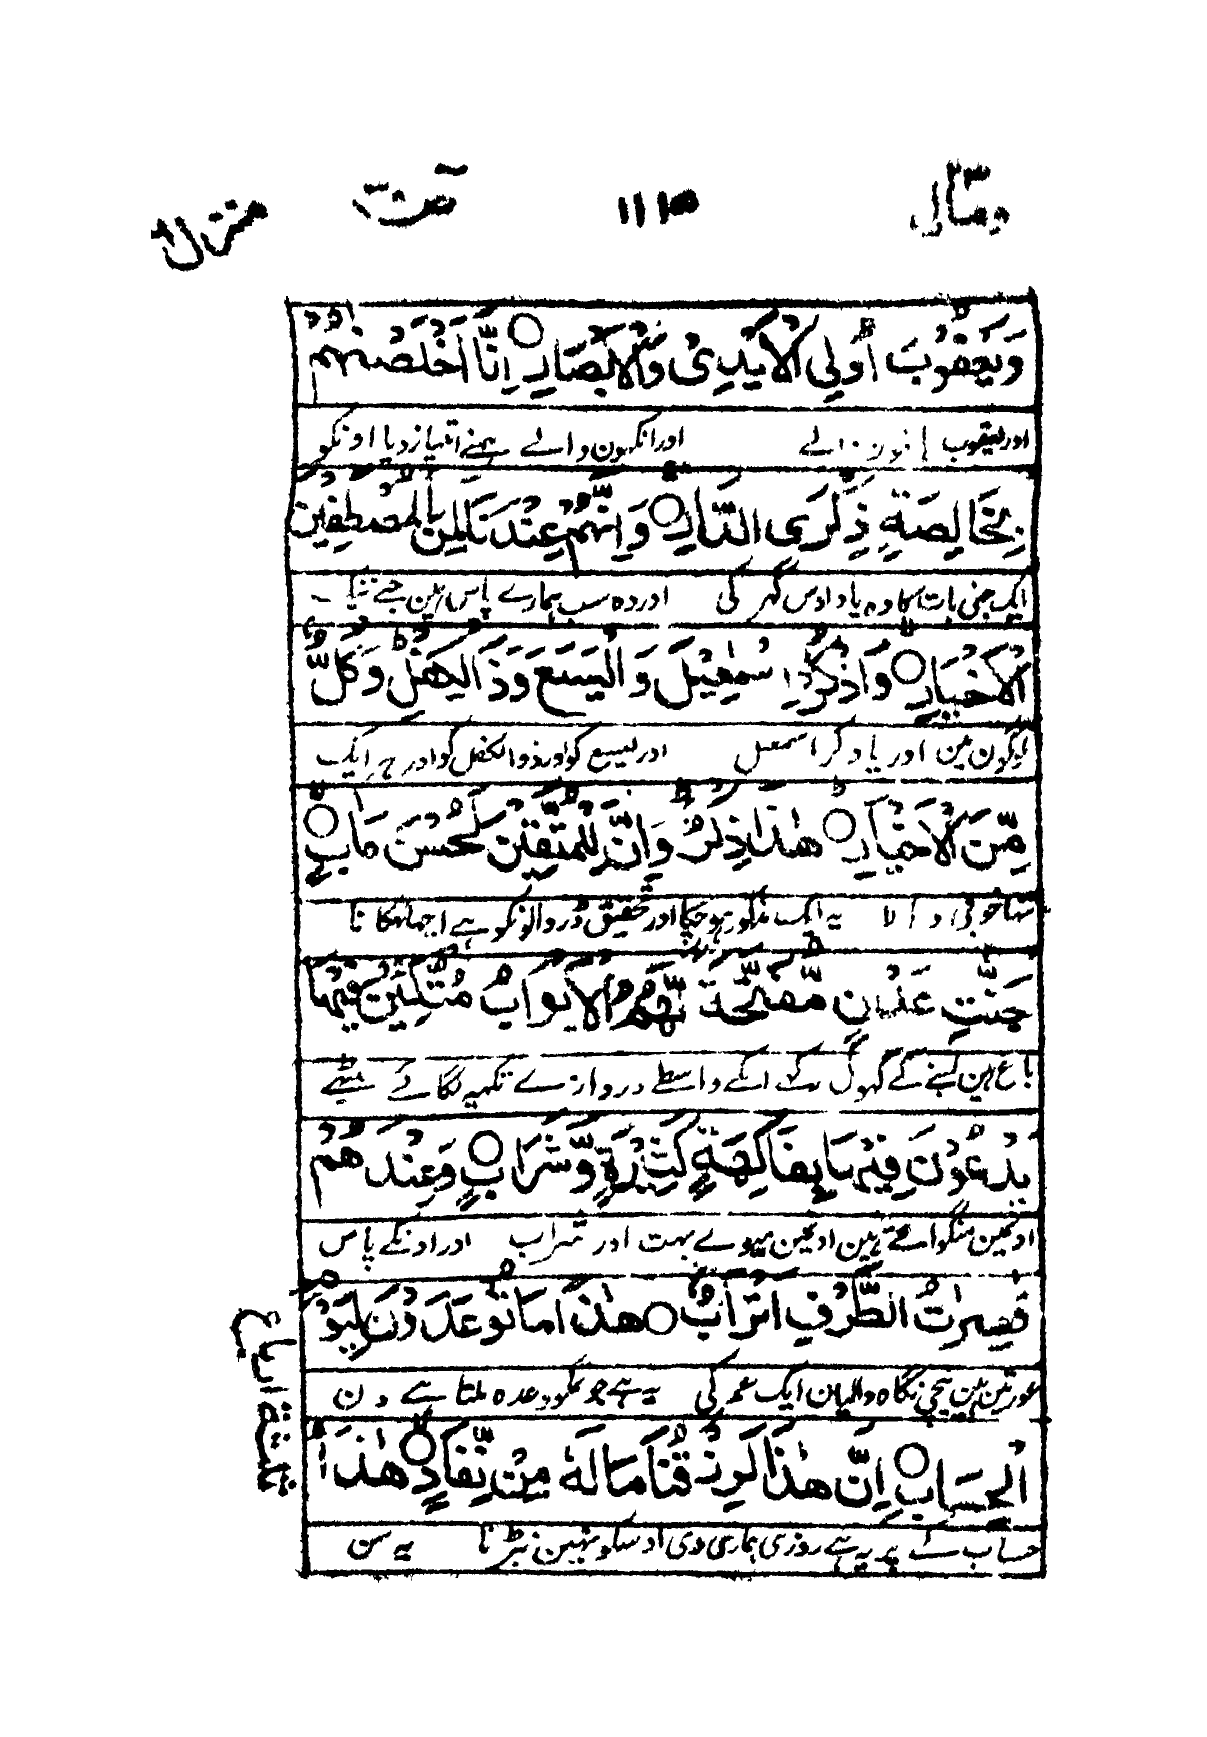 ومالی ۲۳ ۱۱۳ صٓ ۳۸ منزل ۶
وَيَعْقُوْبَ اُولِي الْاَيْدِيْ وَالْاَبْصَارِ ○ اِنَّآ اَخْلَصْنٰهُمْ
اور یعقوب والے اور انکھون والے ہمنے امتیاز دیا اونکو
بِخَالِصَةٍ ذِكْرَى الدَّارِ ○ وَاِنَّهُمْ عِنْدَنَا لَمِنَ الْمُصْطَفَيْنَ
ایک چنی بات کا وہ یاد اوس گھر کی اور وہ سب ہمارے پاس ہین چنے نیک
الْاَخْيَارِ ○ وَاذْكُرْ اِسْمٰعِيْلَ وَالْيَسَعَ وَذَا الْكِفْلِ وَكُلٌّ
لوگون مین اور یاد کر اسمعیل اور لیسع کو اور ذوالکفل کو اور ہر ایک
مِّنَ الْاَخْيَارِ ○ هٰذَا ذِكْرٌ وَاِنَّ لِلْمُتَّقِيْنَ لَحُسْنَ مَاٰبٍ ○
تھا خوبی والا یہ ایک مذکور ہو چکا اور تحقیق ڈر والونکو ہے اچھا ٹھکانا
جَنّٰتِ عَدْنٍ مُّفَتَّحَةً لَّهُمُ الْاَبْوَابُ مُتَّكِئِيْنَ فِيْهَا
باغ ہین بسنے کے کھول رکھے انکے واسطے دروازے تکیہ لگائے بیٹھے
يَدْعُوْنَ فِيْهَا بِفَاكِهَةٍ كَثِيْرَةٍ وَّشَرَابٍ ○ وَعِنْدَهُمْ
اونمین منگواتے ہین اونمین میوے بہت اور شراب اور اونکے پاس
قٰصِرٰتُ الطَّرْفِ اَتْرَابٌ ○ هٰذَا مَا تُوْعَدُوْنَ لِيَوْمِ
عورتین ہین نیچی نگاہ والیان ایک عمر کی یہ ہے جو تمکو وعدہ ملتا ہے دن
الْحِسَابِ ○ اِنَّ هٰذَا لَرِزْقُنَا مَا لَهٗ مِنْ نَّفَادٍ ○ هٰذَا
حساب کے پر یہ ہے روزی ہماری دی اوسکو نہین نبڑنا یہ سن